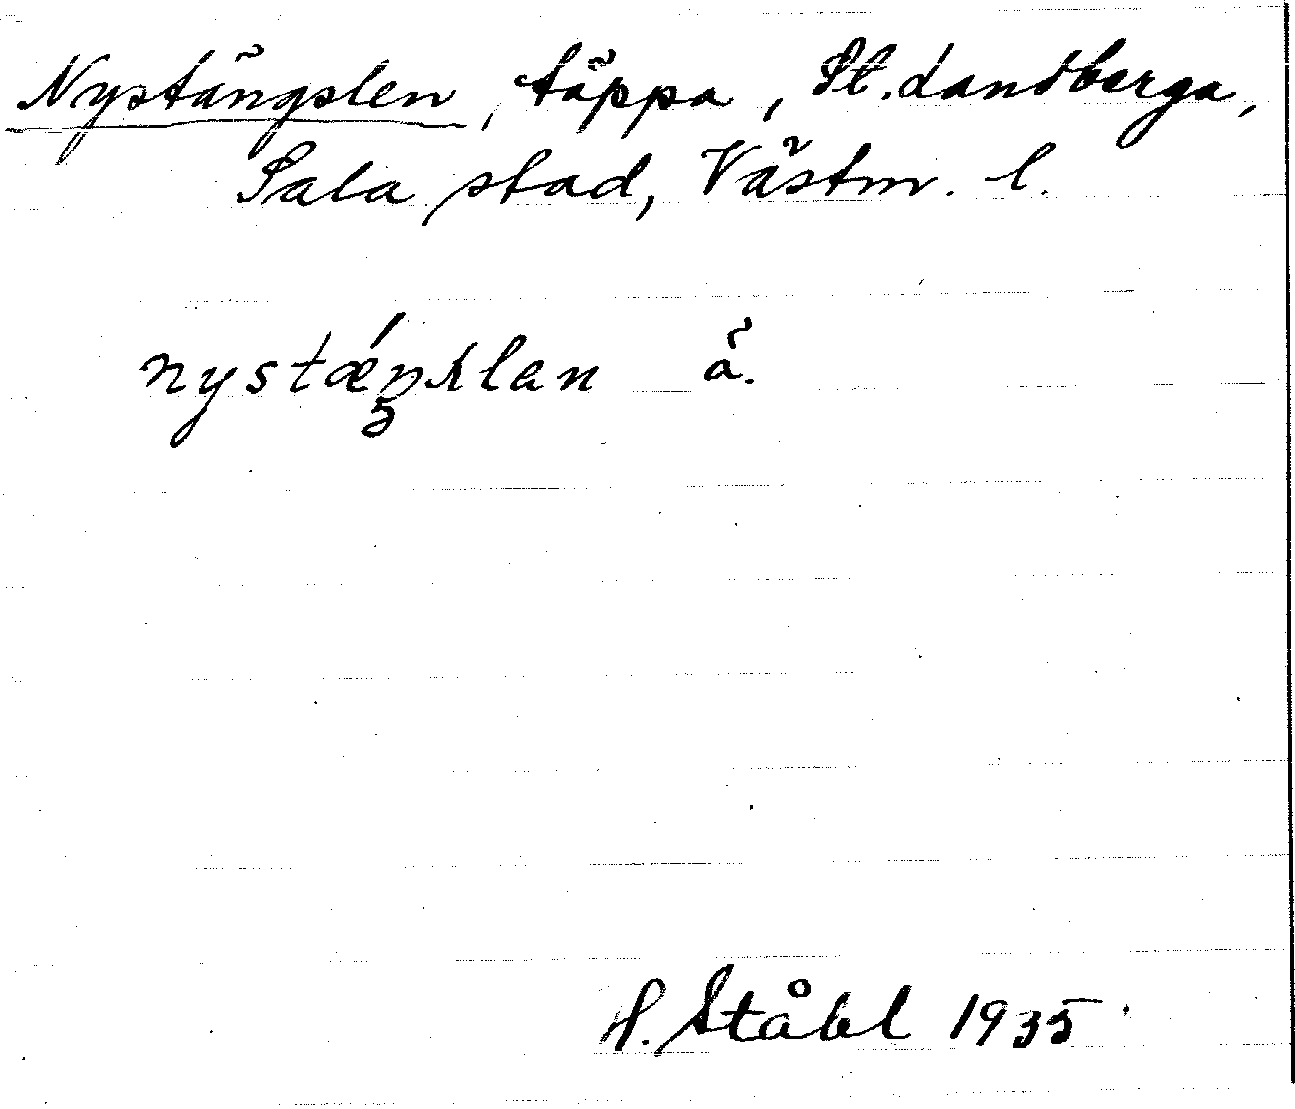 Nystängslen, täppa, St. Sandberga,
Sala stad, Västm. l.
nystǽŋslan ä.
H. Ståhl 1935